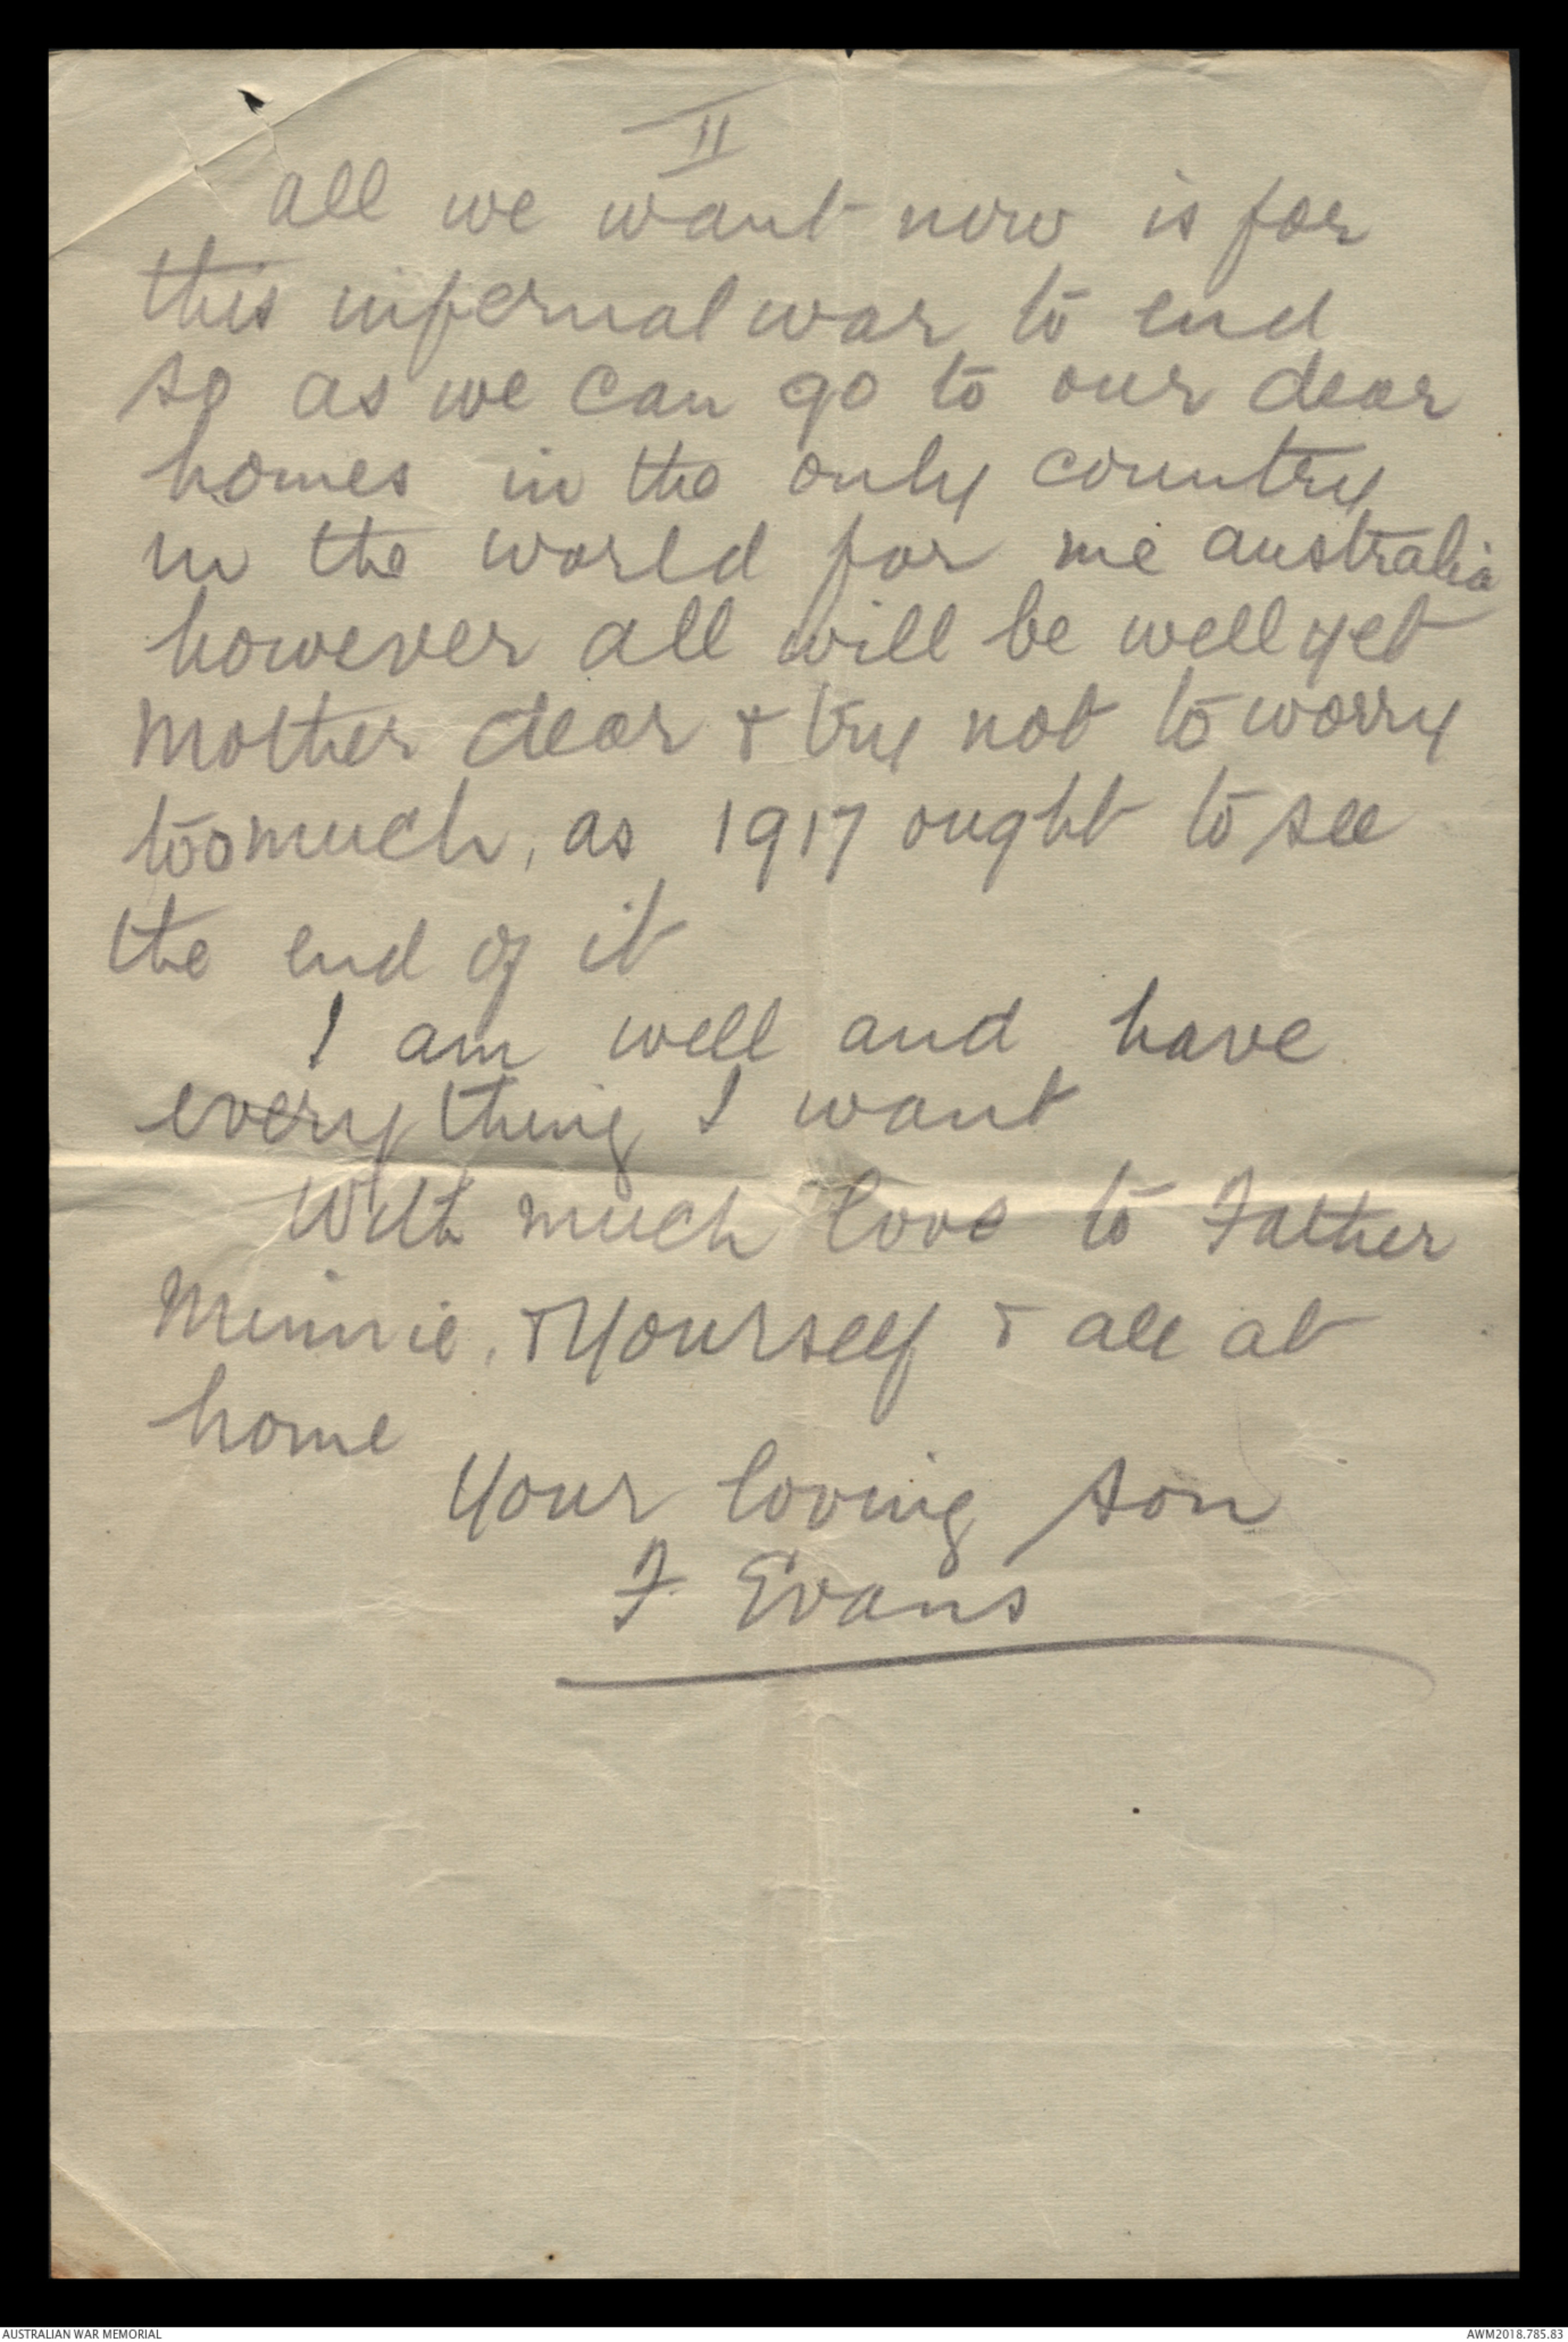 II
all we want now is for
this infernal war to end
so as we can go to our dear
homes in the only country
in the world for me australia
however all will be well yet
Mother dear & try not to worry
too much, as 1917 ought to see
the end of it
I am well and have
everything I want
With much love to Father
Minnie, & Yourself & all at
home
Your loving son
F Evans
AUSTRALIAN WAR MEMORIAL
AWM2018.785.83